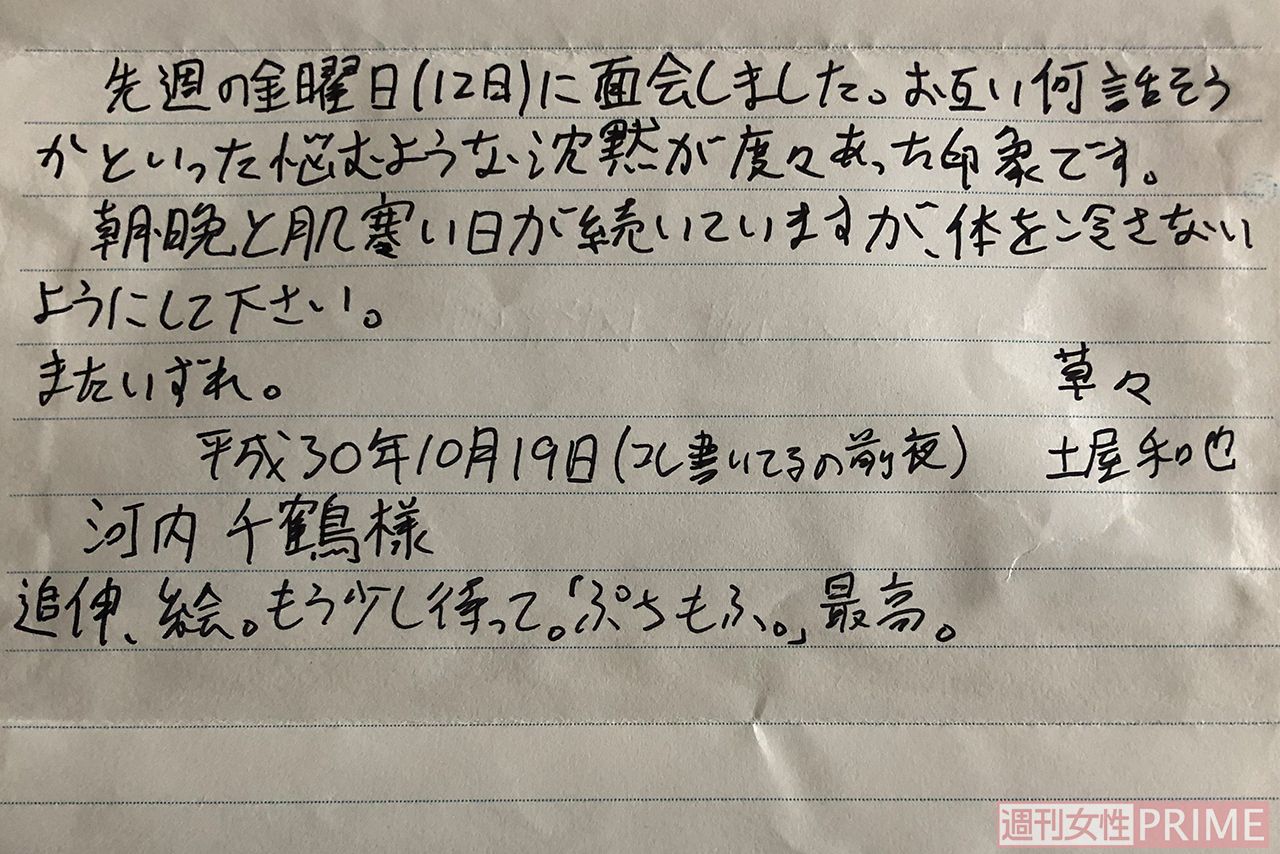 先週の金曜日(12日)に面会しました。お互い何話そう
かといった悩むような沈黙が度々あった印象です。
朝晩と肌寒い日が続いていますが、体を冷さない
ようにして下さい。
またいずれ。 草々
平成30年10月19日(コレ書いてるの前夜) 土屋和也
河内千鶴様
追伸、絵。もう少し待って。「ぷちもふ。」最高。
週刊女性PRIME